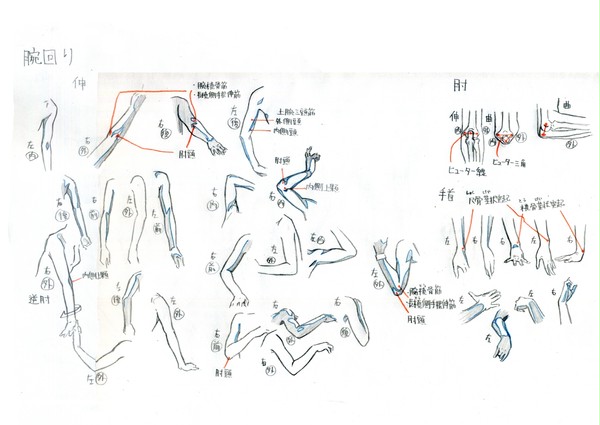 腕回り
伸
・腕橈骨筋
・長橈側手根伸筋
肘頭
左
内
右
外
右
後
左
後
上腕三頭筋
外側頭
内側頭
肘頭
内側上顆
右
内
右
内
左
内
右
後
右
前
左
外
左
前
右
外
内側上顆
逆肘
左
外
左
後
左
外
右
前
外
右
左
左
外
・腕橈骨筋
・長橈側手根伸筋
肘頭
右
前
肘頭
右
外
右
後
肘
伸
曲
曲
外
ヒューター線
ヒューター三角
手首
尺骨茎状突起
橈骨茎状突起
左
右
右
左
右
左
左
右
左